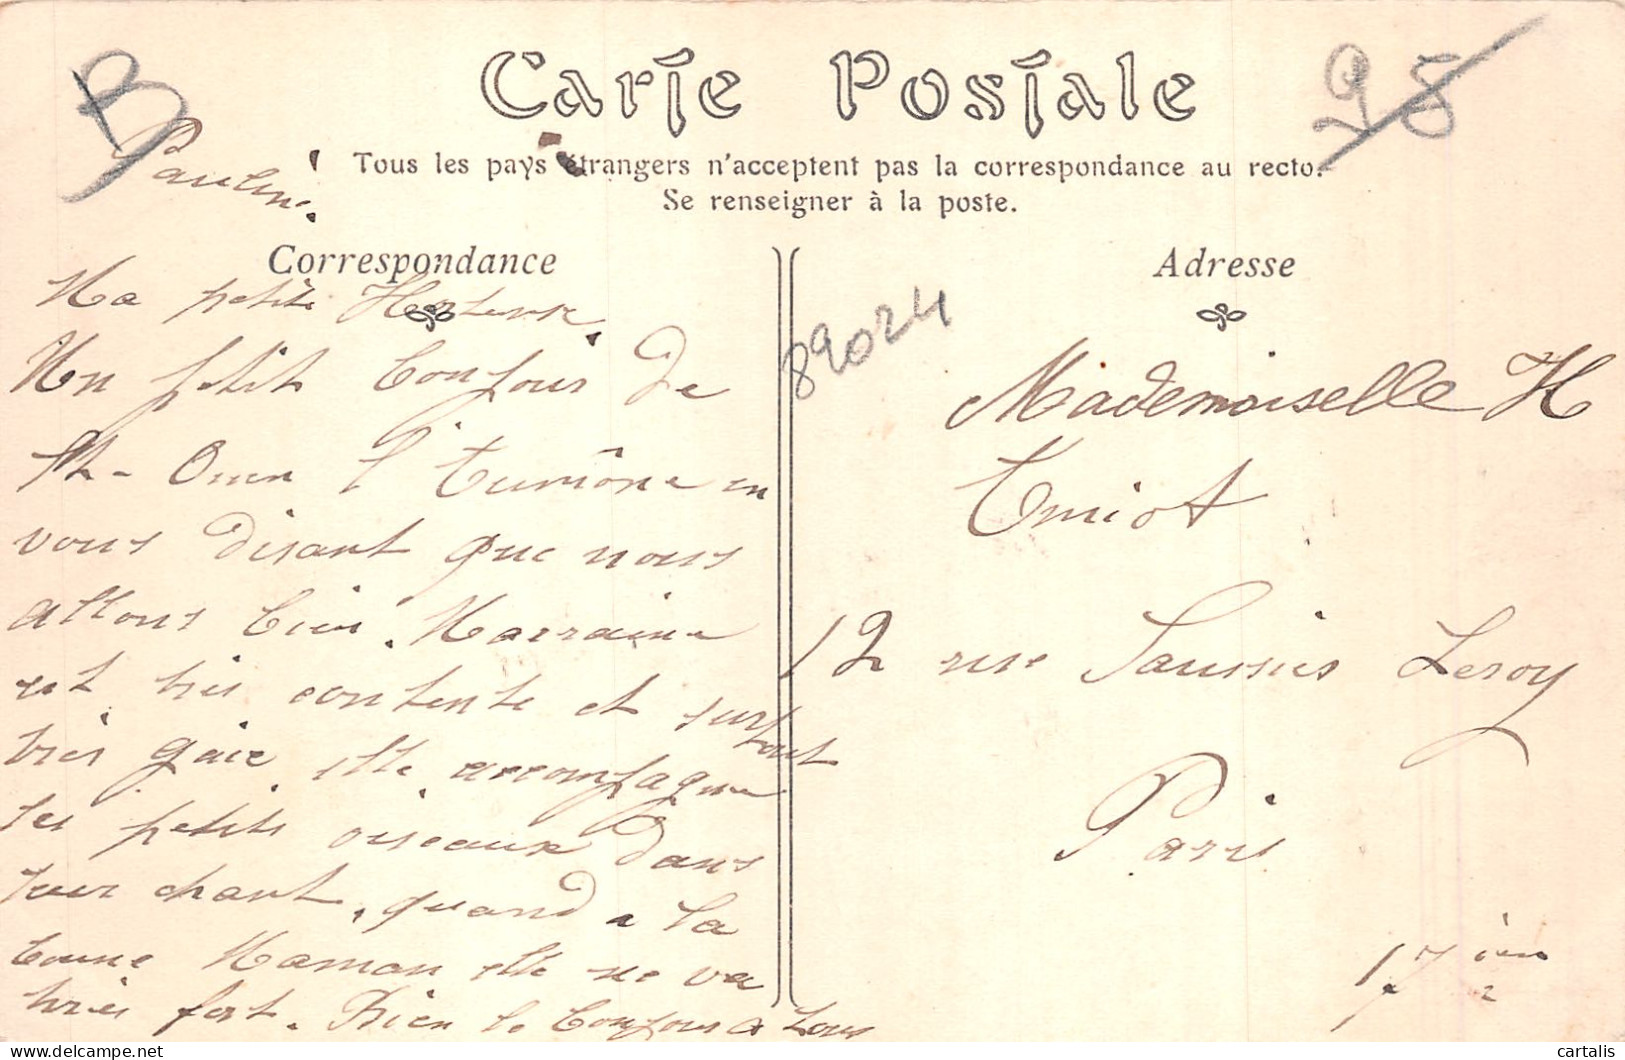 Carte Postale
Tous les pays étrangers n'acceptent pas la correspondance au recto.
Se renseigner à la poste.
B
98
Correspondance
Adresse
89024
Ma petite
Un petit bonjour de
St-Ouen l'Aumône en
vous disant que nous
allons bien. Marraine
est très contente et surtout
très gaie, elle accompagne
les petits oiseaux dans
leur chant, quand a la
bonne Maman elle ne va
très fort. Bien le bonjour a tous
Mademoiselle H
12 rue Saussier Leroy
Paris
17 ièm
cartalis
delcampe.net